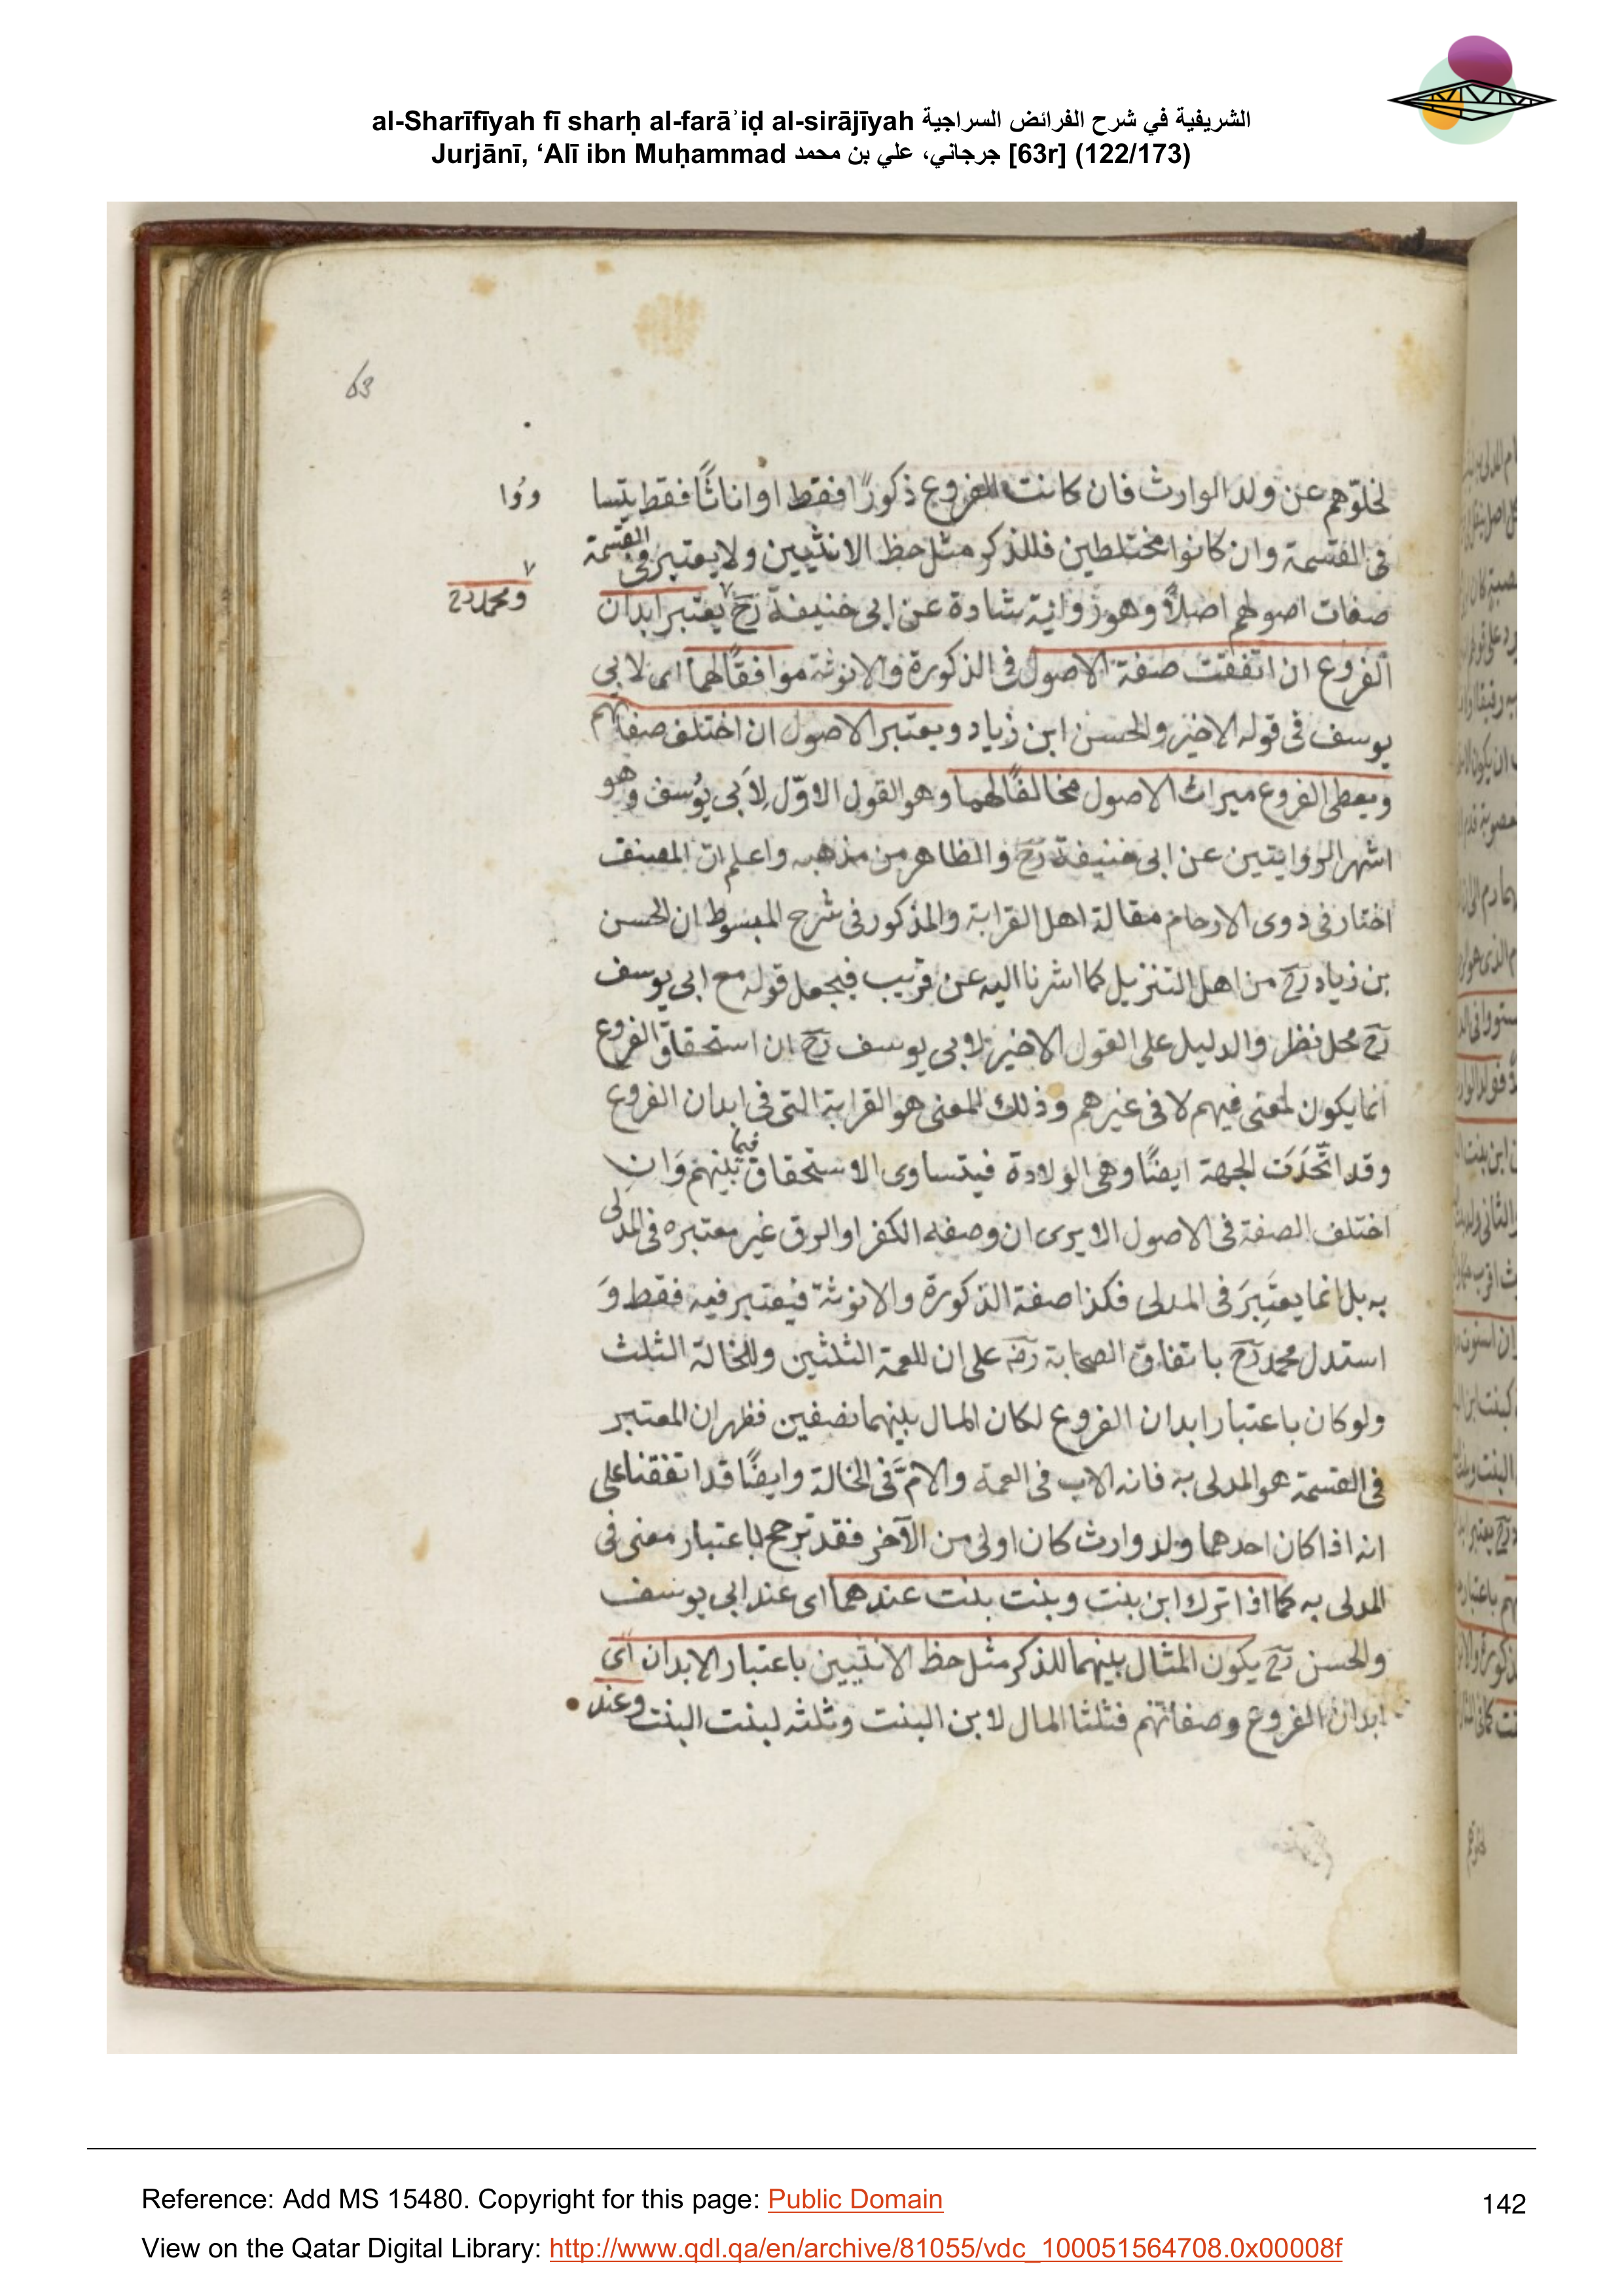 al-Sharīfīyah fī sharḥ al-farāʾiḍ al-sirājīyah الشريفية في شرح الفرائض السراجية
Jurjānī, ‘Alī ibn Muḥammad جرجاني، علي بن محمد [63r] (122/173)
63
لخلوّهم عن ولد الوارث فان كانت الفروع ذكورًا فقط او اناثًا فقط يتسا
ووا
فى القسمة وان كانوا مختلطين فللذكر مثل حظ الانثيين ولا يعتبر فى القسمة
صفات اصولهم اصلاً وهو رواية شاذة عن ابى حنيفة رح يعتبر ابدان
ومحمد رح
الفروع ان اتفقت صفة الاصول فى الذكورة والانوثة موافقًا لهما اى لابى
يوسف فى قوله الاخير والحسن ابن زياد ويعتبر الاصول ان اختلف صفاتهم
ويعطى الفروع ميراث الاصول مخالفًا لهما وهو القول الاوّل لِأبى يُوسف وهو
اشهر الروايتين عن ابى حنيفة رح والظاهر من مذهبه واعلم ان المصنف
اختار فى ذوى الارحام مقالة اهل القرابة والمذكور فى شرح المبسوط ان الحسن
بن زياد رح من اهل التنزيل كما اشرنا اليه عن قريب فيجعل قوله مع ابى يوسف
رح محل نظر والدليل على القول الاخير لابى يوسف رح ان استحقاق الفروع
انما يكون لمعنى فيهم لا فى غيرهم وذلك المعنى هو القرابة التى فى ابدان الفروع
وقد اتّحَدَت الجهة ايضًا وهى الولادة فيتساوى الاستحقاق فيما بينهم وَان
اختلف الصفة فى الاصول الا يرى ان وصفه الكفر او الرق غير معتبره فى المدلى
به بل انما يعتَبِرَ فى المدلى فكذا صفة الذكورة والانوثة فيُعتبر فيه فقط وَ
استدل محمد رح باتفاق الصحابة رضه على ان للعمة الثلثين وللخالة الثلث
ولو كان باعتبار ابدان الفروع لكان المال بينهما نصفين فظهر ان المعتبر
فى القسمة هو المدلى به فانه الاب فى العمة والامّ فى الخالة وايضًا قد اتفقنا على
انه اذا كان احدهما ولد وارث كان اولى من الآخر فقد ترجح باعتبار معنى فى
المدلى به كما اذا ترك ابن بنت وبنت بنت عندهما اى عند ابى يوسف
والحسن رح يكون المثال بينهما للذكر مثل حظ الانثيين باعتبار الابدان اى
ابدان الفروع وصفاتهم فثلثا المال لابن البنت وثلثه لبنت البنت وعند
Reference: Add MS 15480. Copyright for this page: Public Domain
142
View on the Qatar Digital Library: http://www.qdl.qa/en/archive/81055/vdc_100051564708.0x00008f